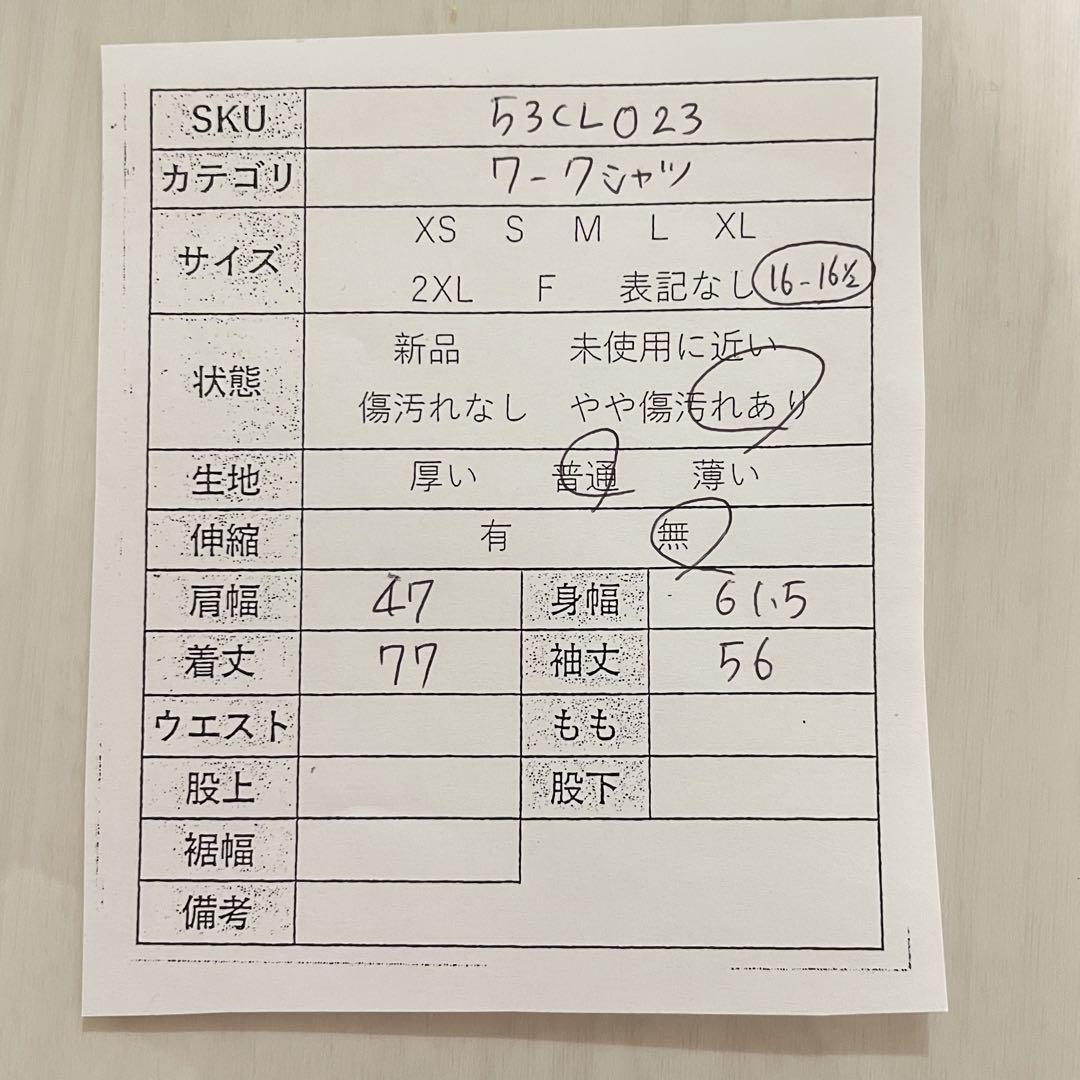 SKU 53CL023
カテゴリ ワークシャツ
サイズ XS S M L XL
2XL F 表記なし 16-16½
状態 新品 未使用に近い
傷汚れなし やや傷汚れあり
生地 厚い 普通 薄い
伸縮 有 無
肩幅 47 身幅 61.5
着丈 77 袖丈 56
ウエスト もも
股上 股下
裾幅
備考